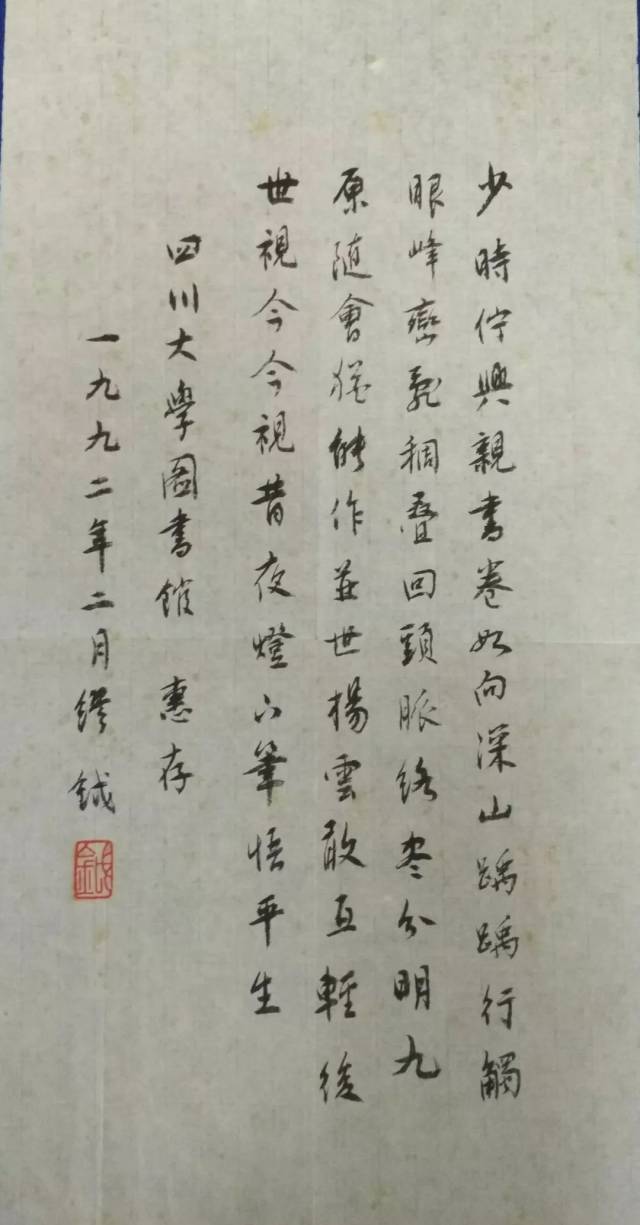 少時佇興親書卷如向深山踽踽行觸
眼峰巒亂稠疊回頭脈絡盡分明九
原隨會猶能作並世揚雲敢互輕後
世視今今視昔夜燈下筆悟平生
四川大學圖書館 惠存
一九九二年二月繆鉞
鉞